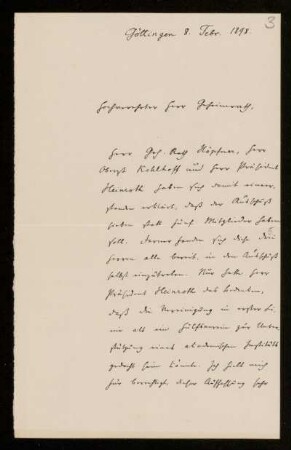 3
Göttingen 8. Febr. 1898.
Hochverehrter Herr Geheimrath,
Herr Geh. Rath Höpfner, Herr
Oberst Kohlhoff und Herr Präsident
Heinroth haben sich damit einver-
standen erklärt, daß der Ausschuß
sieben statt fünf Mitglieder haben
soll. Ferner fanden sich diese drei
Herren alle bereit, in den Ausschuß
selbst einzutreten. Nur hatte Herr
Präsident Heinroth das Bedenken,
daß die Vereinigung in erster Li-
nie als ein Hülfsverein zur Unter-
stützung eines akademischen Instituts
gedacht sein könnte. Ich hielt mich
für berechtigt, dieser Auffassung sehr